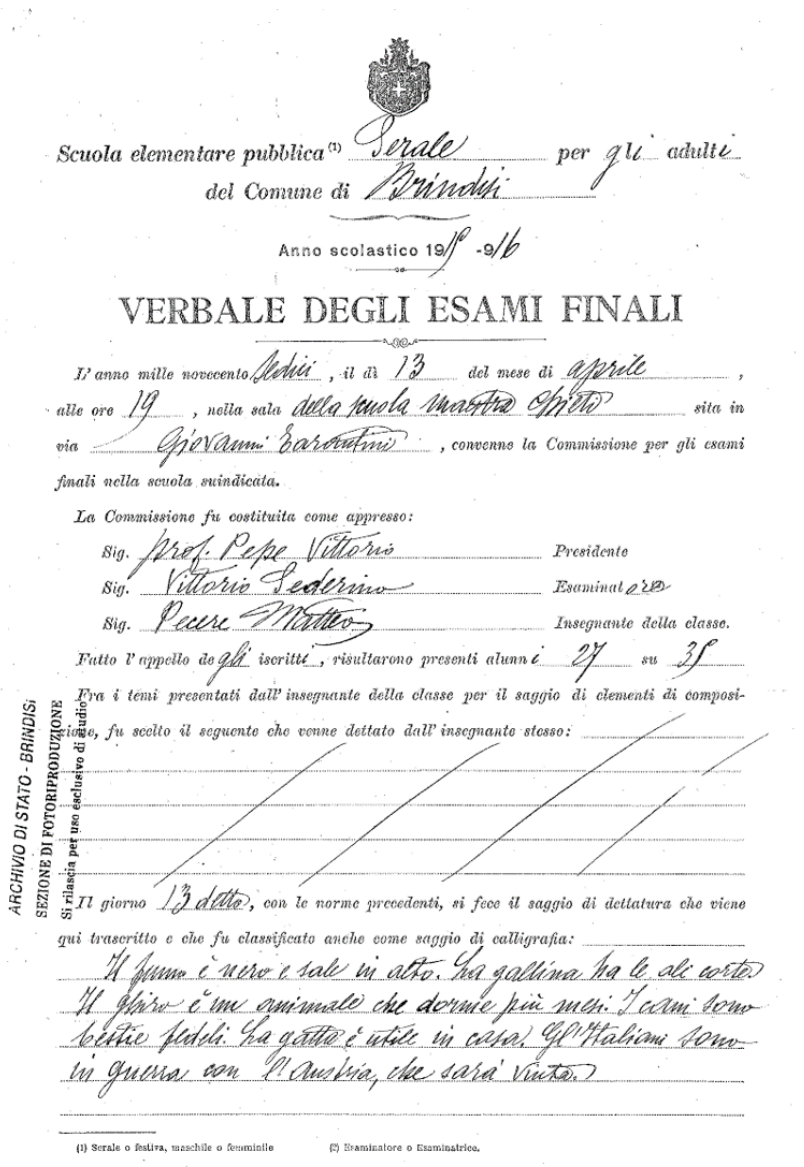 Scuola elementare pubblica (1) Serale per gli adulti
del Comune di Brindisi
Anno scolastico 1915 -916
VERBALE DEGLI ESAMI FINALI
L'anno mille novecento sedici, il dì 13 del mese di aprile,
alle ore 19, nella sala della scuola maestra sita in
via Giovanni Tarantini, convenne la Commissione per gli esami
finali nella scuola suindicata.
La Commissione fu costituita come appresso:
Sig. prof. Pepe Vittorio Presidente
Sig. Vittorio Esaminatore
Sig. Pecere Matteo Insegnante della classe.
Fatto l'appello degli iscritti, risultarono presenti alunni 27 su 35
Fra i temi presentati dall'insegnante della classe per il saggio di elementi di composi-
zione, fu scelto il seguente che venne dettato dall'insegnante stesso:
Il giorno 13 detto, con le norme precedenti, si fece il saggio di dettatura che viene
qui trascritto e che fu classificato anche come saggio di calligrafia:
Il fumo è nero e sale in alto. La gallina ha le ali corte.
Il ghiro è un animale che dorme più mesi. I cani sono
bestie fedeli. La gatta è utile in casa. Gl'Italiani sono
in guerra con l'Austria, che sarà vinta.
(1) Serale o festiva, maschile o femminile (2) Esaminatore o Esaminatrice.
ARCHIVIO DI STATO - BRINDISI
SEZIONE DI FOTORIPRODUZIONE
Si rilascia per uso esclusivo di studio